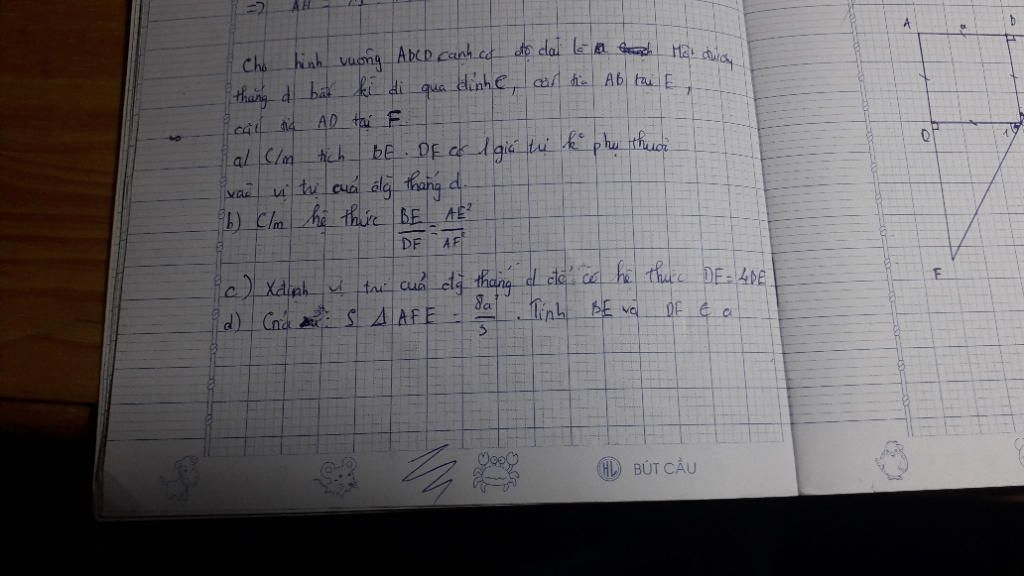 => AH =
Cho hình vuông ABCD cạnh có độ dài là a Một đường
thẳng d bất kì đi qua đỉnh C, cắt tia AB tại E,
cắt tia AD tại F.
a) C/m tích BE . DF có 1 giá trị k phụ thuộc
vào vị trí của đg thẳng d.
b) C/m hệ thức BE/DF = AE²/AF²
c) Xđịnh vị trí của đg thẳng d để có hệ thức DF = 4BE
d) : S Δ AFE = 8a²/3 . Tính BE và DF a
HL BÚT CẦU
A
a
B
D
1
F